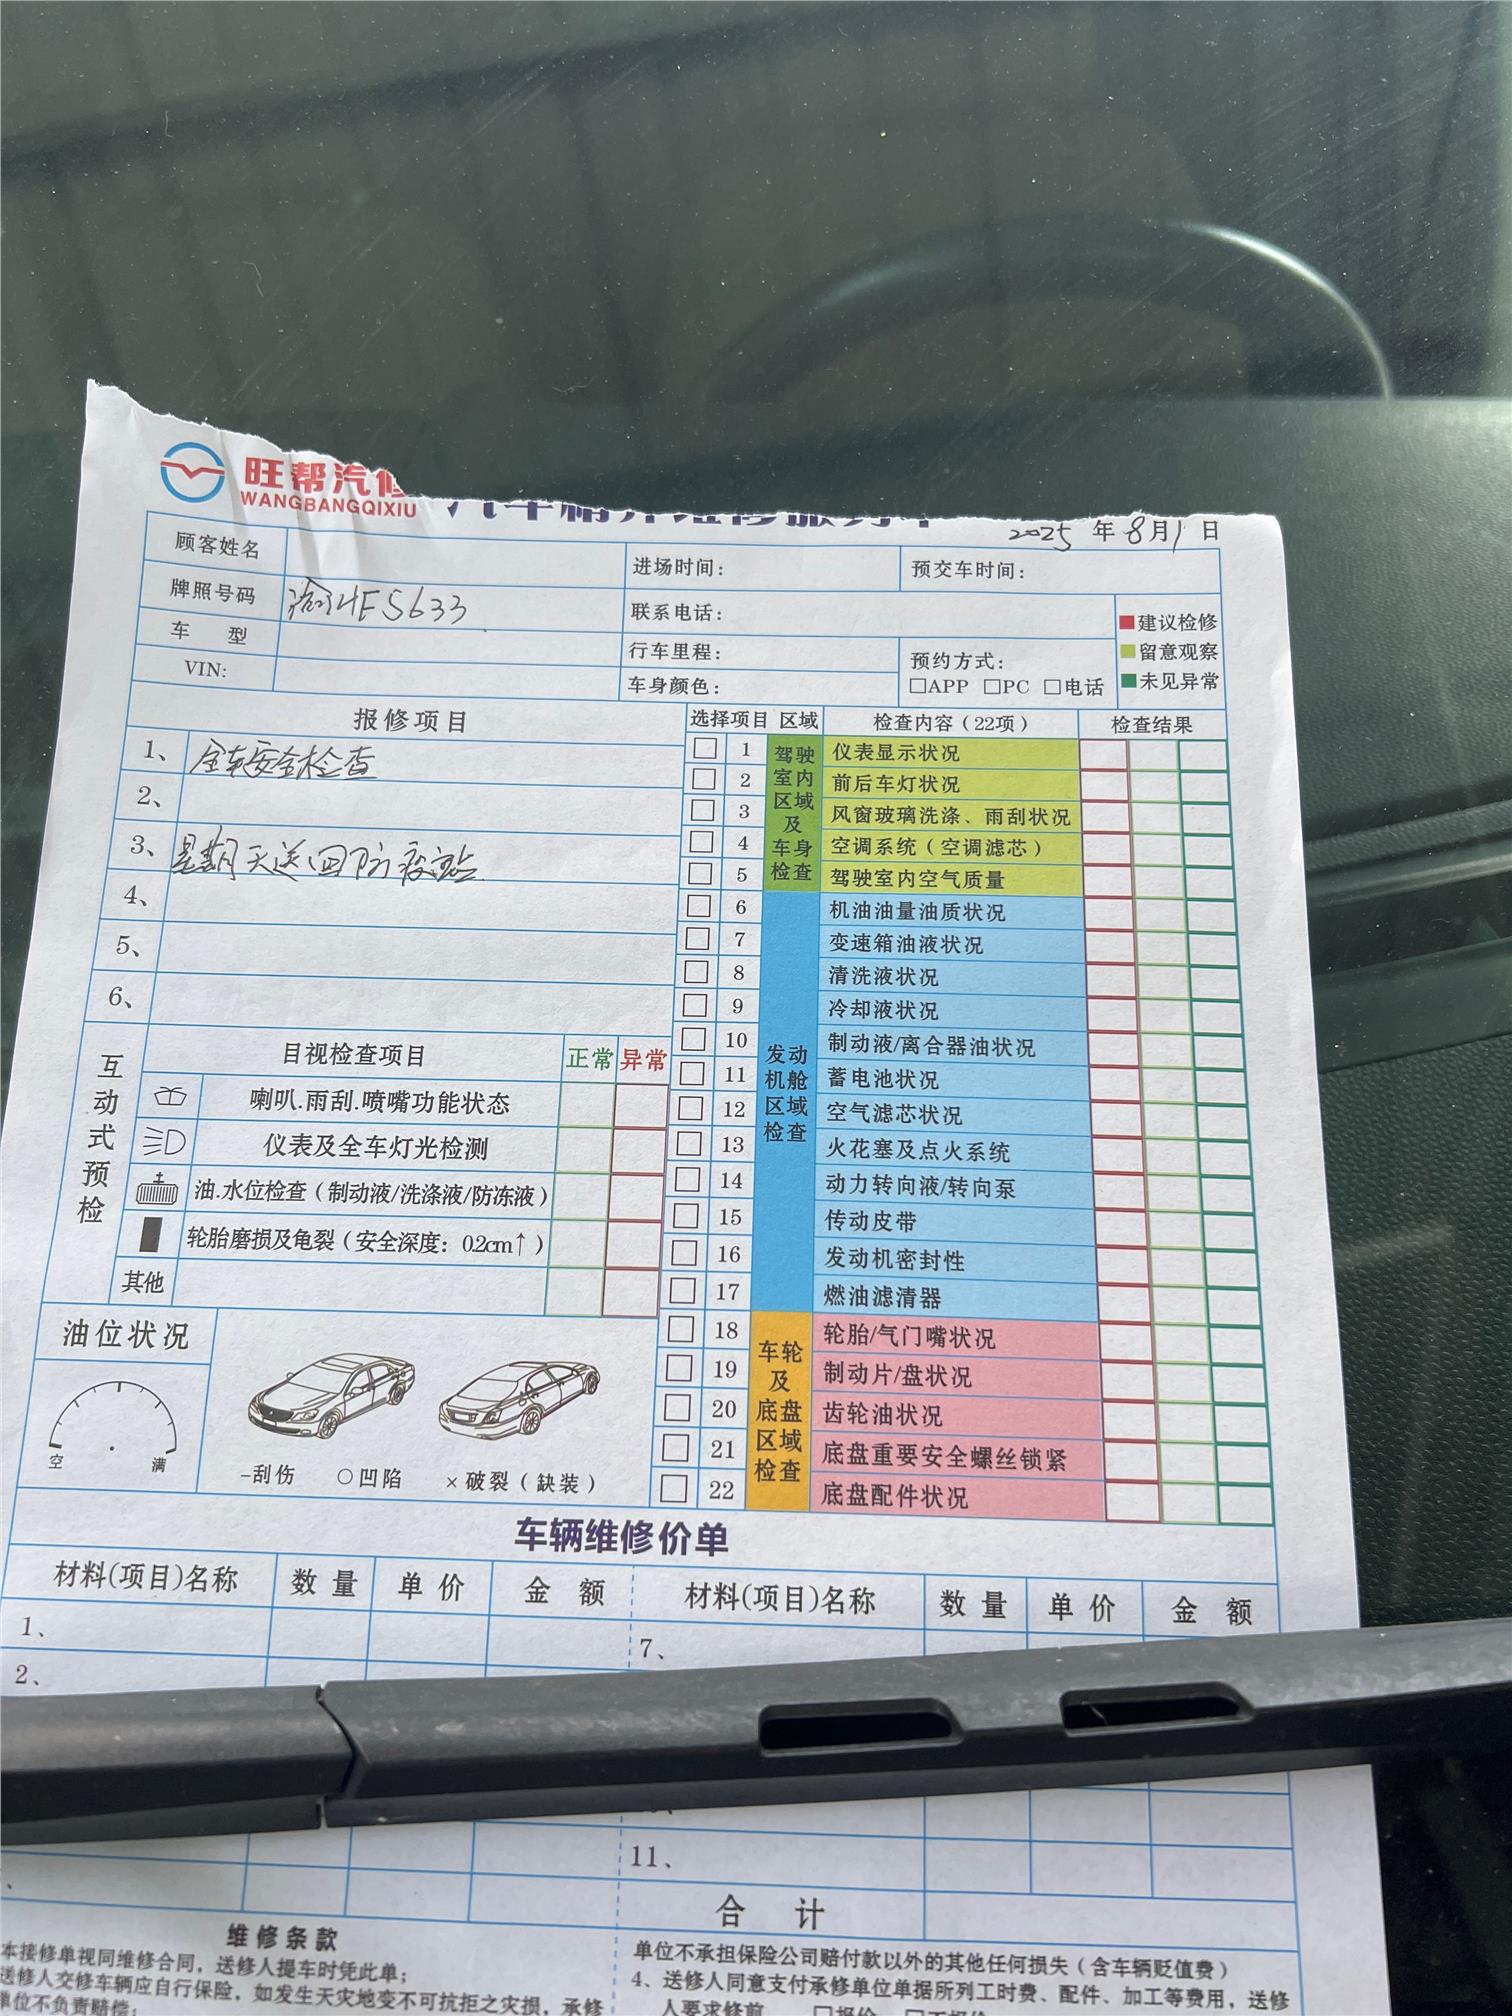 旺帮汽修
WANGBANGQIXIU
2025 年 8月1日
顾客姓名
进场时间：
预交车时间：
牌照号码
4F5633
联系电话：
车 型
行车里程：
预约方式：
□APP □PC □电话
VIN:
车身颜色：
建议检修
留意观察
未见异常
报修项目
1、全车安全检查
2、
3、星期天送回防疫站
4、
5、
6、
选择项目 区域 检查内容（22项） 检查结果
驾驶室内区域及车身检查
1 仪表显示状况
2 前后车灯状况
3 风窗玻璃洗涤、雨刮状况
4 空调系统（空调滤芯）
5 驾驶室内空气质量
发动机舱区域检查
6 机油油量油质状况
7 变速箱油液状况
8 清洗液状况
9 冷却液状况
10 制动液/离合器油状况
11 蓄电池状况
12 空气滤芯状况
13 火花塞及点火系统
14 动力转向液/转向泵
15 传动皮带
16 发动机密封性
17 燃油滤清器
车轮及底盘区域检查
18 轮胎/气门嘴状况
19 制动片/盘状况
20 齿轮油状况
21 底盘重要安全螺丝锁紧
22 底盘配件状况
互动式预检
目视检查项目 正常 异常
喇叭.雨刮.喷嘴功能状态
仪表及全车灯光检测
油.水位检查（制动液/洗涤液/防冻液）
轮胎磨损及龟裂（安全深度：0.2cm↑）
其他
油位状况
空 满
-刮伤 ○凹陷 ×破裂（缺装）
车辆维修价单
材料(项目)名称 数量 单价 金额 材料(项目)名称 数量 单价 金额
1、
7、
2、
11、
合 计
维修条款
本接修单视同维修合同，送修人提车时凭此单；
送修人交修车辆应自行保险，如发生天灾地变不可抗拒之灾损，承修
单位不负责赔偿；
单位不承担保险公司赔付款以外的其他任何损失（含车辆贬值费）
4、送修人同意支付承修单位单据所列工时费、配件、加工等费用，送修
人要求修前